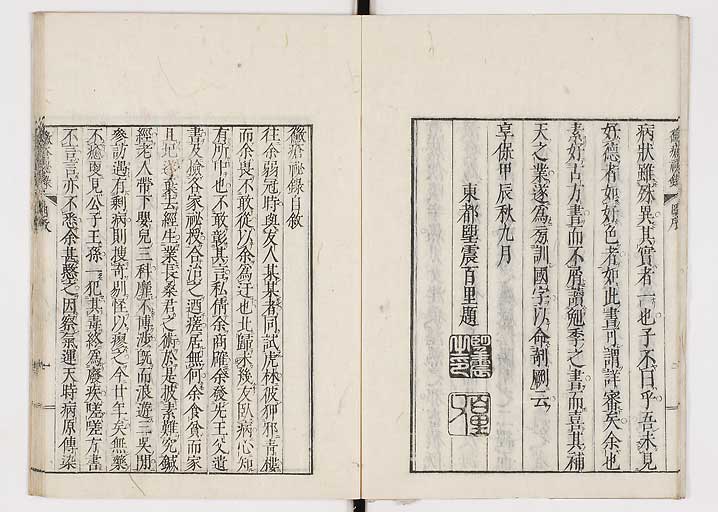 病狀雖殊異其實者一也子不曰乎吾未見
好德者如好色者如此書可謂詳審矣余也
素好古方書而不屑讀兔季之書而喜其補
天之業遂為刕訓國字以命剞劂云
享保甲辰秋九月
東都望震百里題
百里
黴瘡祕錄自敘
往余弱冠時與友人某某者同試虎林彼狎邪青樓
而余畏不敢從以余為迂也北歸未幾友臥病心知
有所中也不敢彰其言私倩余商確余發先王父遺
書及檢各家祕授合治之迺瘥居無何余食貧而家
且圯遂棄去經生業長桑君之術於是披素難究鍼
經老人帶下嬰兒三科靡不博涉旣而浪遊三吳閒
參訪遇有剩病則搜奇剔怪以療之今廿年矣無藥
不癒更見公子王孫一犯其毒終為廢疾嗟嗟方書
不言言亦不悉余甚愍之因察氣運天時病原傳染